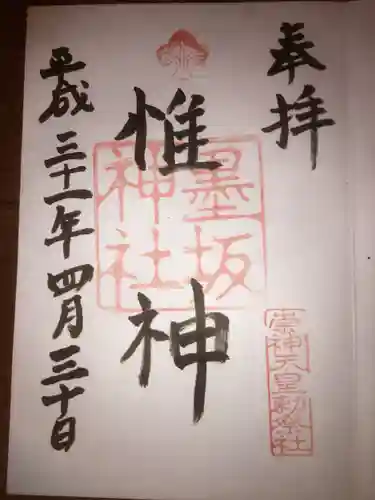 奉拝
崇神天皇勅祭社
惟神
墨坂神社
平成三十一年四月三十日